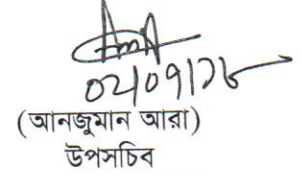 ০২/০৭/১৮
(আনজুমান আরা)
উপসচিব